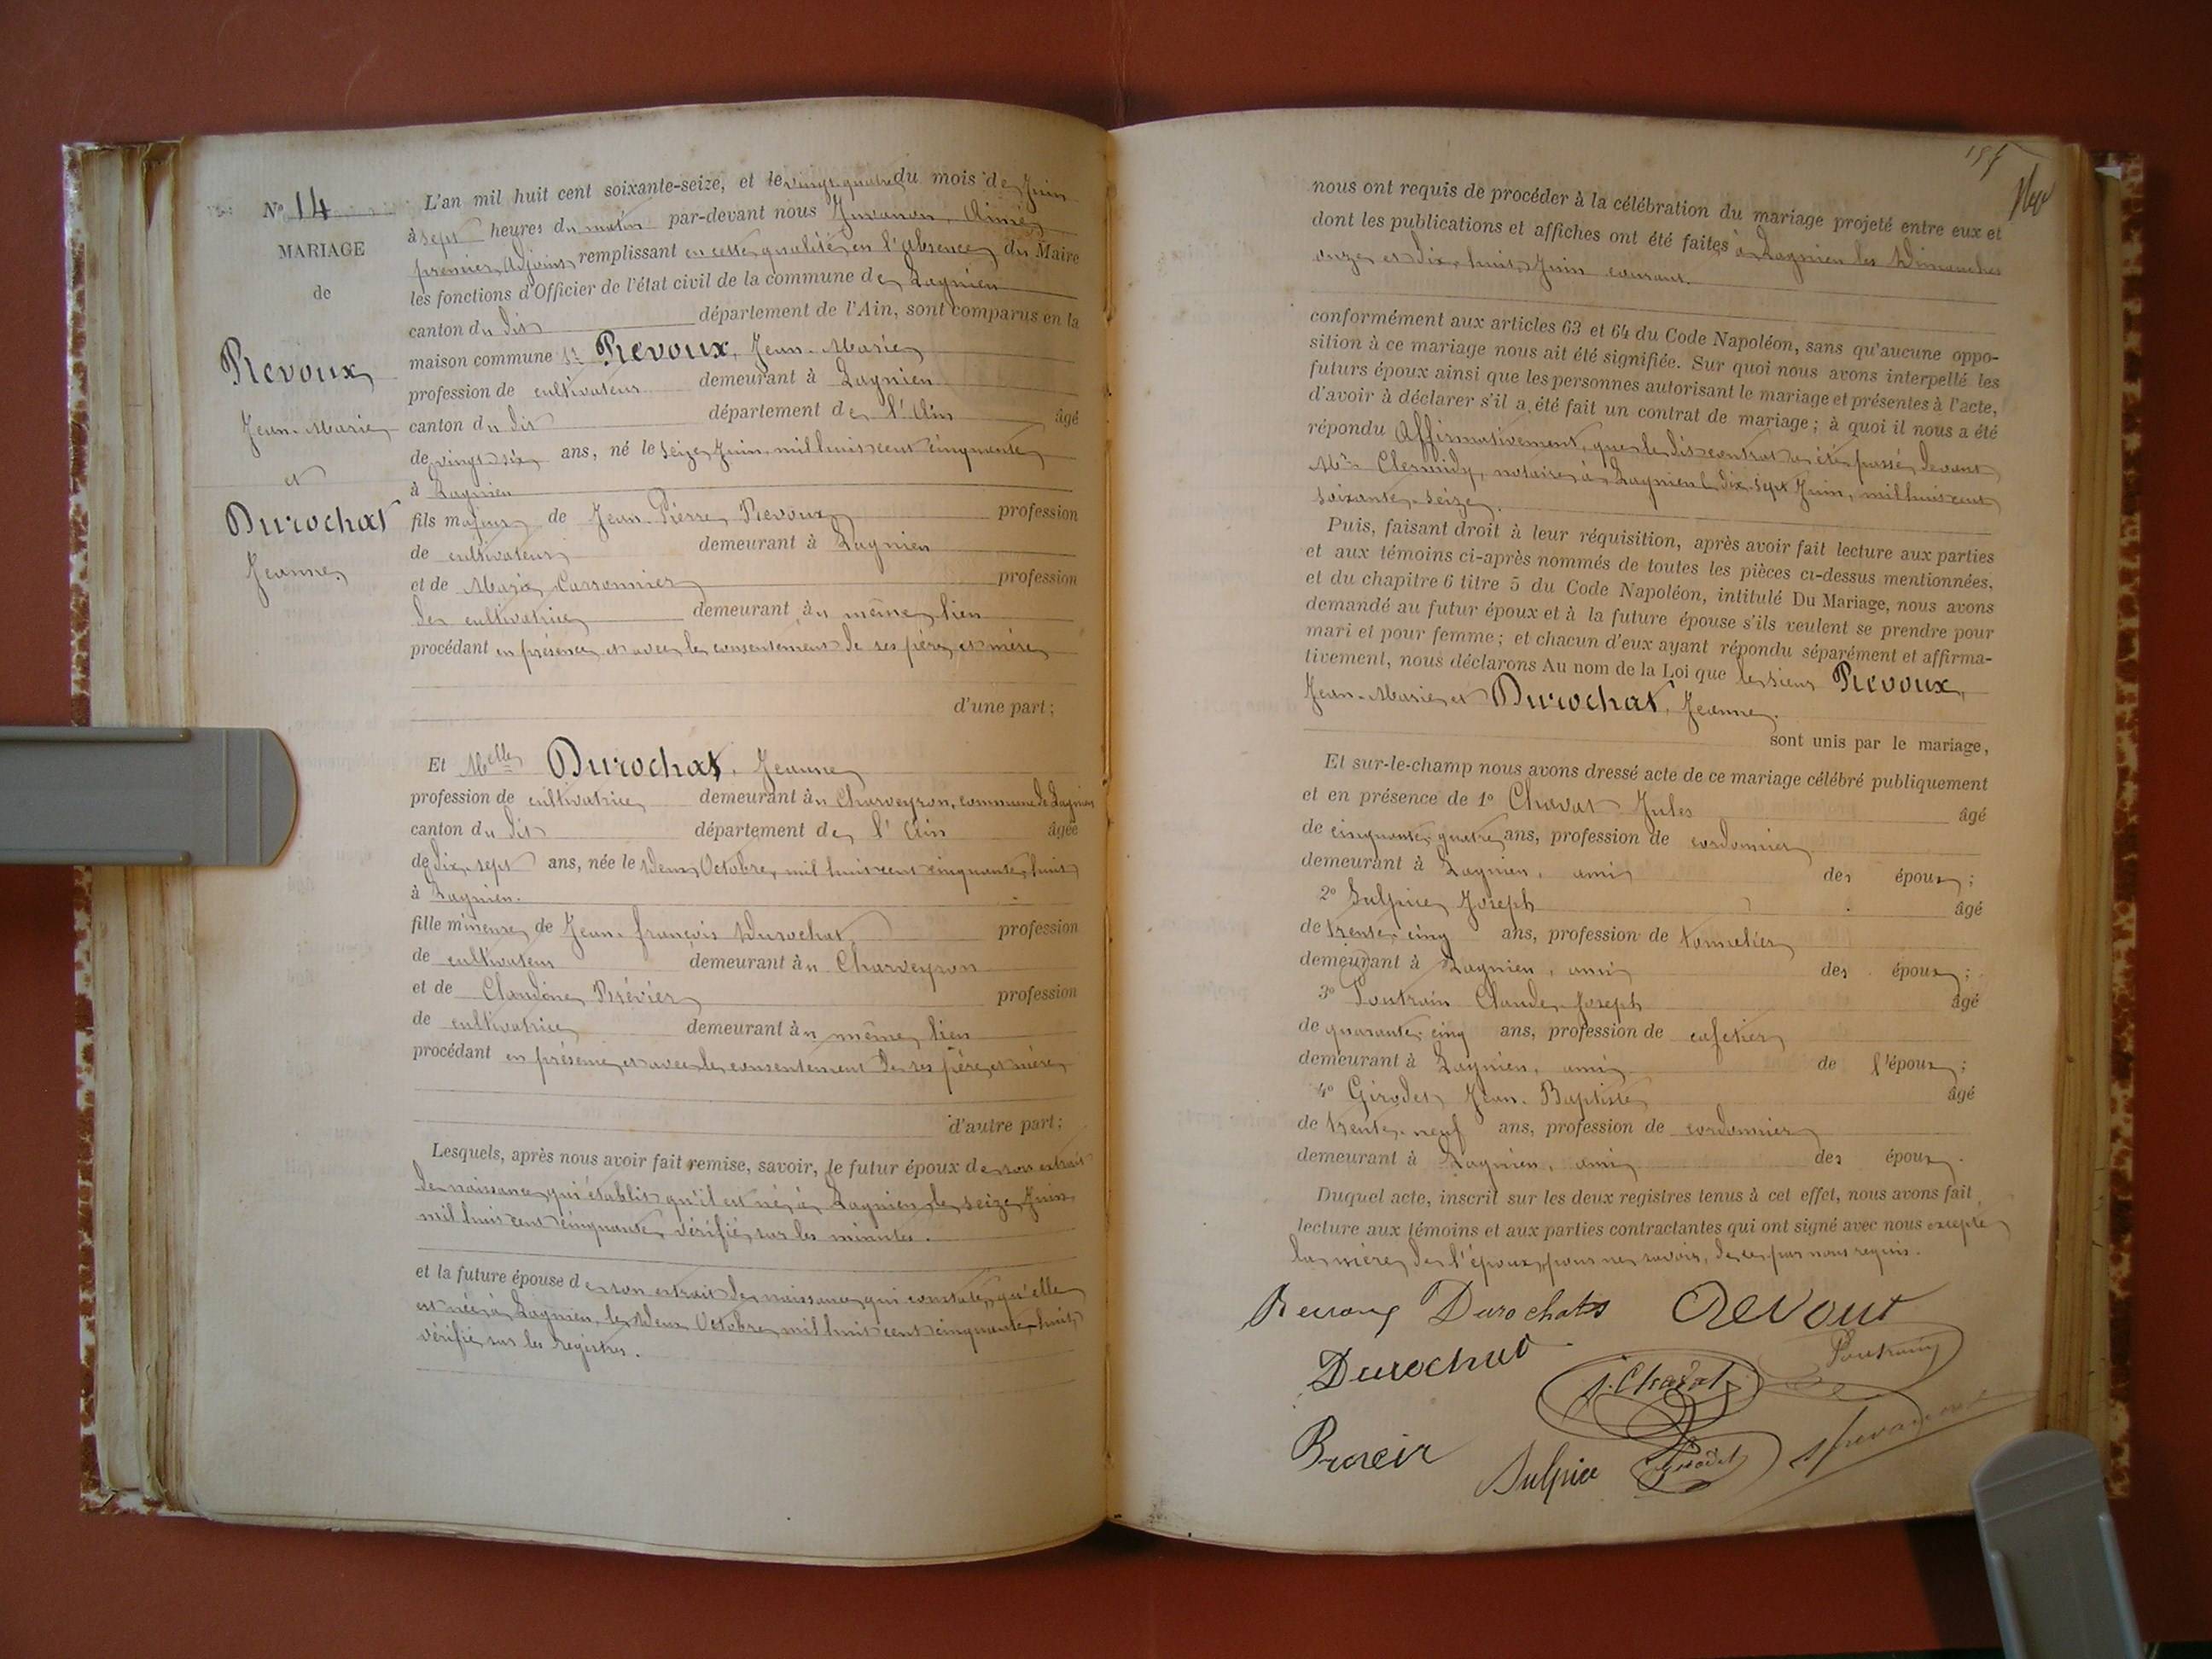 Nº 14
MARIAGE
de
Revoux
Jean-Marie
et
Durochat
Jeanne
L'an mil huit cent soixante-seize, et le vingt-quatre du mois de Juin
à sept heures du matin par-devant nous Juvanon Aimé
premier Adjoint remplissant en cette qualité en l'absence du Maire
les fonctions d'Officier de l'état civil de la commune de Lagnieu
canton du dit département de l'Ain, sont comparus en la
maison commune Sr Revoux, Jean-Marie
profession de cultivateur demeurant à Lagnieu
canton du dit département de l'Ain âgé
de vingt-six ans, né le seize Juin mil huit cent cinquante
à Lagnieu
fils majeur de Jean-Pierre Revoux profession
de cultivateur demeurant à Lagnieu
et de Marie Carronnier profession
de cultivatrice demeurant au même lieu
procédant en présence et avec le consentement de ses père et mère
d'une part;
Et Melle Durochat, Jeanne
profession de cultivatrice demeurant à Charveyron, commune de Lagnieu
canton du dit département de l'Ain âgée
de dix-sept ans, née le deux Octobre, mil huit cent cinquante-huit
à Lagnieu.
fille mineure de Jean-françois Durochat profession
de cultivateur demeurant à Charveyron
et de Claudine profession
de cultivatrice demeurant au même lieu
procédant en présence et avec le consentement de ses père et mère
d'autre part;
Lesquels, après nous avoir fait remise, savoir, le futur époux de son extrait
de naissance qui établit qu'il est né à Lagnieu le seize Juin
mil huit cent cinquante, vérifié sur les minutes.
et la future épouse de son extrait de naissance qui constate qu'elle
est née à Lagnieu, le deux Octobre mil huit cent cinquante-huit,
vérifié sur les registres.
nous ont requis de procéder à la célébration du mariage projeté entre eux et
dont les publications et affiches ont été faites à Lagnieu les Dimanches
onze et dix-huit Juin courant.
conformément aux articles 63 et 64 du Code Napoléon, sans qu'aucune oppo-
sition à ce mariage nous ait été signifiée. Sur quoi nous avons interpellé les
futurs époux ainsi que les personnes autorisant le mariage et présentes à l'acte,
d'avoir à déclarer s'il a été fait un contrat de mariage; à quoi il nous a été
répondu Affirmativement, que le dit contrat a été passé devant
Me notaire à Lagnieu le dix-sept Juin, mil huit cent
soixante-seize.
Puis, faisant droit à leur réquisition, après avoir fait lecture aux parties
et aux témoins ci-après nommés de toutes les pièces ci-dessus mentionnées,
et du chapitre 6 titre 5 du Code Napoléon, intitulé Du Mariage, nous avons
demandé au futur époux et à la future épouse s'ils veulent se prendre pour
mari et pour femme; et chacun d'eux ayant répondu séparément et affirma-
tivement, nous déclarons Au nom de la Loi que le sieur Revoux,
Jean-Marie et Durochat, Jeanne.
sont unis par le mariage,
Et sur-le-champ nous avons dressé acte de ce mariage célébré publiquement
et en présence de 1º Chavat Jules âgé
de cinquante-quatre ans, profession de cordonnier
demeurant à Lagnieu, ami des époux;
2º Sulpice Joseph âgé
de trente-cinq ans, profession de tonnelier
demeurant à Lagnieu, ami des époux;
3º Poutrain Claude-Joseph âgé
de quarante-cinq ans, profession de cafetier
demeurant à Lagnieu, ami de l'époux;
4º Girodet Jean-Baptiste âgé
de trente-neuf ans, profession de cordonnier
demeurant à Lagnieu, ami des époux.
Duquel acte, inscrit sur les deux registres tenus à cet effet, nous avons fait
lecture aux témoins et aux parties contractantes qui ont signé avec nous excepté
la mère de l'époux, pour ne savoir, de ce par nous requis.
Durochat Revout
Durochat
J. Chavat Poutrain
Sulpice Girodet